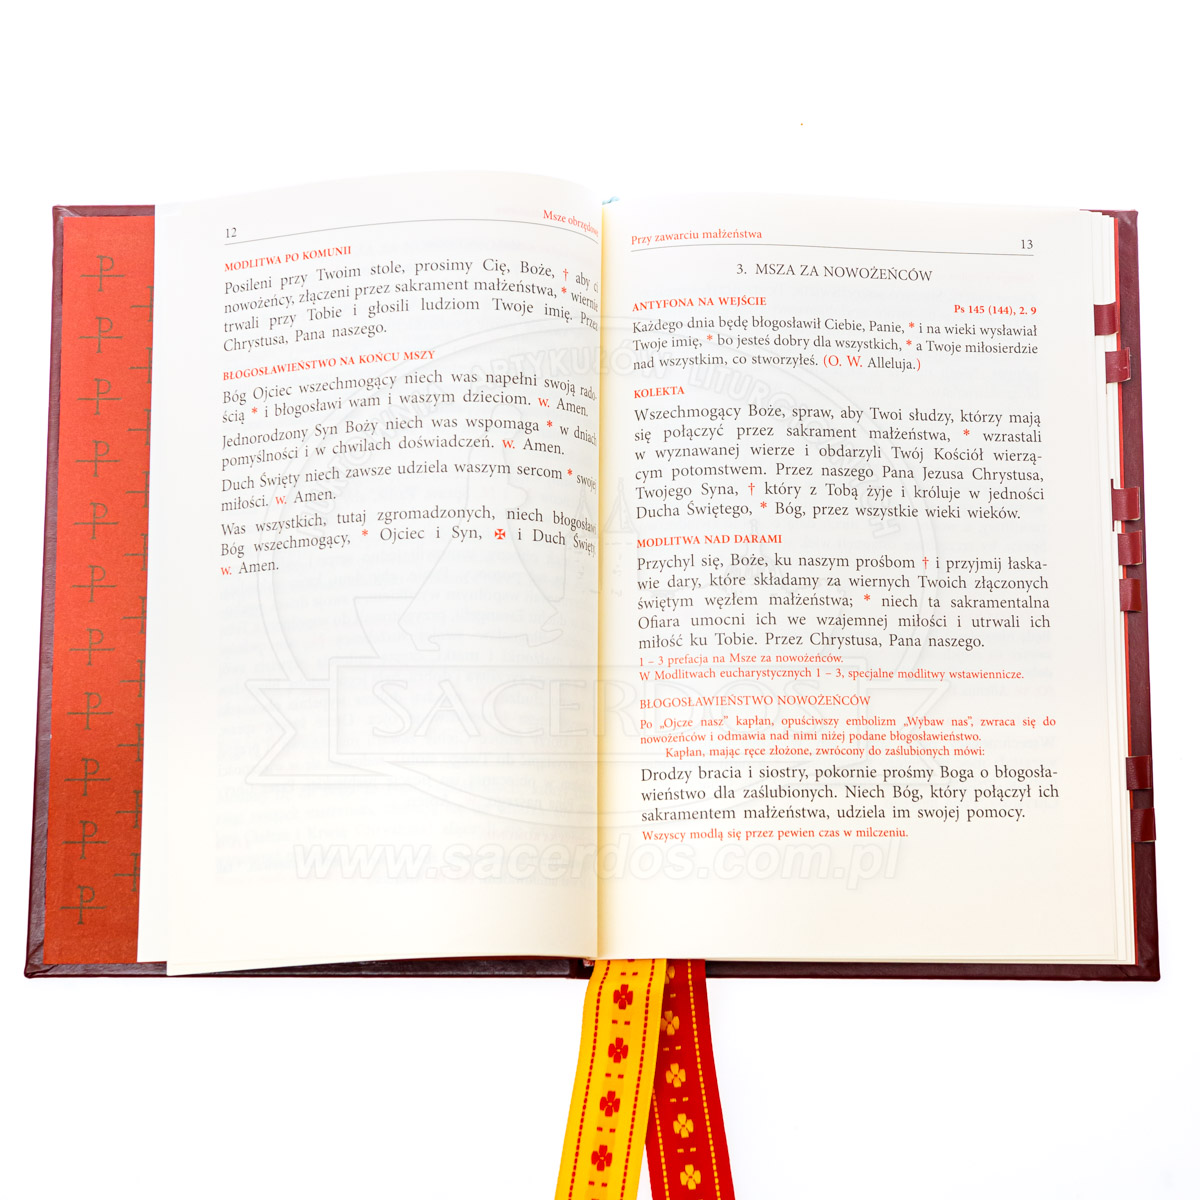 12
Msze obrzędowe
MODLITWA PO KOMUNII
Posileni przy Twoim stole, prosimy Cię, Boże, † aby ci
nowożeńcy, złączeni przez sakrament małżeństwa, * wiernie
trwali przy Tobie i głosili ludziom Twoje imię. Przez
Chrystusa, Pana naszego.
BŁOGOSŁAWIEŃSTWO NA KOŃCU MSZY
Bóg Ojciec wszechmogący niech was napełni swoją rado-
ścią * i błogosławi wam i waszym dzieciom. w. Amen.
Jednorodzony Syn Boży niech was wspomaga * w dniach
pomyślności i w chwilach doświadczeń. w. Amen.
Duch Święty niech zawsze udziela waszym sercom * swojej
miłości. w. Amen.
Was wszystkich, tutaj zgromadzonych, niech błogosławi
Bóg wszechmogący, * Ojciec i Syn, ✠ i Duch Święty.
w. Amen.
Przy zawarciu małżeństwa
13
3. MSZA ZA NOWOŻEŃCÓW
ANTYFONA NA WEJŚCIE
Ps 145 (144), 2. 9
Każdego dnia będę błogosławił Ciebie, Panie, * i na wieki wysławiał
Twoje imię, * bo jesteś dobry dla wszystkich, * a Twoje miłosierdzie
nad wszystkim, co stworzyłeś. (O. W. Alleluja.)
KOLEKTA
Wszechmogący Boże, spraw, aby Twoi słudzy, którzy mają
się połączyć przez sakrament małżeństwa, * wzrastali
w wyznawanej wierze i obdarzyli Twój Kościół wierzą-
cym potomstwem. Przez naszego Pana Jezusa Chrystusa,
Twojego Syna, † który z Tobą żyje i króluje w jedności
Ducha Świętego, * Bóg, przez wszystkie wieki wieków.
MODLITWA NAD DARAMI
Przychyl się, Boże, ku naszym prośbom † i przyjmij łaska-
wie dary, które składamy za wiernych Twoich złączonych
świętym węzłem małżeństwa; * niech ta sakramentalna
Ofiara umocni ich we wzajemnej miłości i utrwali ich
miłość ku Tobie. Przez Chrystusa, Pana naszego.
1 – 3 prefacja na Msze za nowożeńców.
W Modlitwach eucharystycznych 1 – 3, specjalne modlitwy wstawiennicze.
BŁOGOSŁAWIEŃSTWO NOWOŻEŃCÓW
Po „Ojcze nasz" kapłan, opuściwszy embolizm „Wybaw nas", zwraca się do
nowożeńców i odmawia nad nimi niżej podane błogosławieństwo.
Kapłan, mając ręce złożone, zwrócony do zaślubionych mówi:
Drodzy bracia i siostry, pokornie prośmy Boga o błogosła-
wieństwo dla zaślubionych. Niech Bóg, który połączył ich
sakramentem małżeństwa, udziela im swojej pomocy.
Wszyscy modlą się przez pewien czas w milczeniu.
SACERDOS
www.sacerdos.com.pl